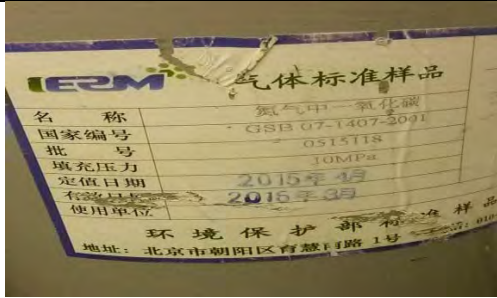 IERM 气体标准样品
名 称 氮气中一氧化碳
国家编号 GSB 07-1407-2001
批 号 0515118
填充压力 10MPa
定值日期 2015年4月
2015年3月
使用单位
环境保护部标准样品
地址: 北京市朝阳区育慧南路1号 010